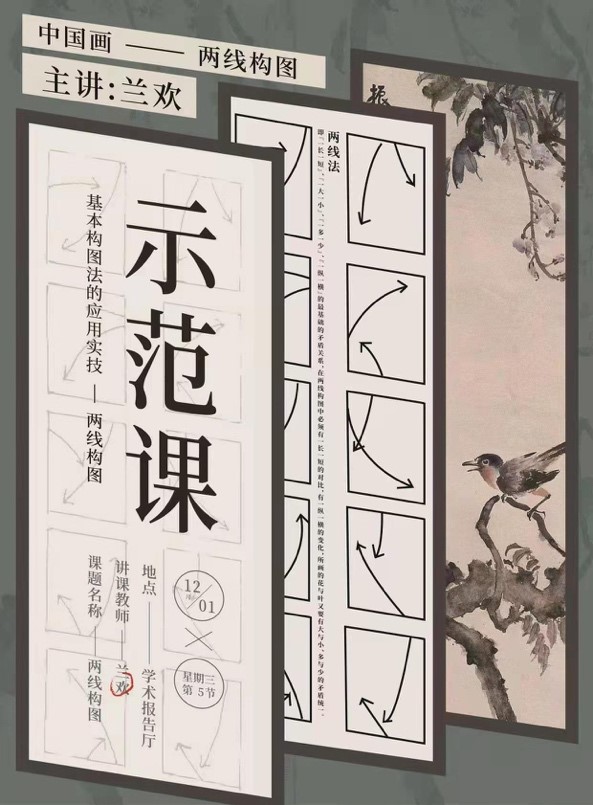 中国画 —— 两线构图
主讲:兰欢
振
两线法
即「一长一短」、「一大一小」、「一多一少」、「一纵一横」的最基础的矛盾关系。在两线构图中必须有一长一短的对比，有一纵一横的变化，所画的花与叶又要有大与小、多与少的矛盾统一。
示范课
基本构图法的应用实技 — 两线构图
12/01
星期三
第 5节
地点 —— 学术报告厅
讲课教师 —— 兰欢
课题名称 —— 两线构图